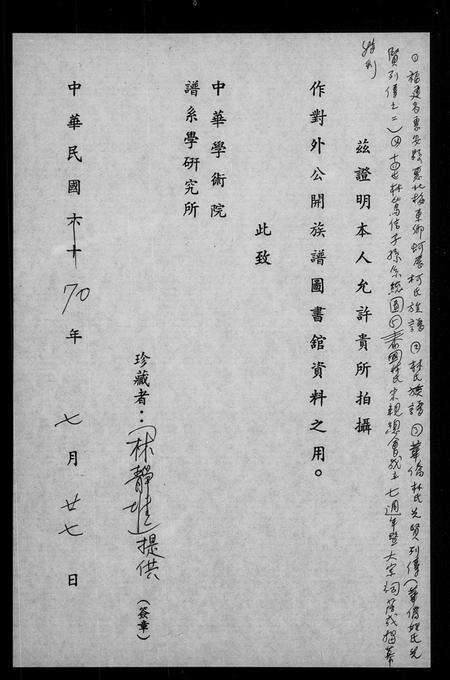 ①福建省惠安縣惠北梅東鄉蚵厝柯氏族譜 ②林氏族譜 ③華僑林氏先賢列傳（華僑姓氏先
賢列傳之二）④十四世林 信子孫系統圖⑤泰國林氏宗親總會成立七週年暨大宗祠落成揭幕
特刊
茲證明本人允許貴所拍攝
作對外公開族譜圖書館資料之用。
此致
中華學術院
譜系學研究所
珍藏者：林靜 提供（簽章）
中華民國六十70年七月廿七日